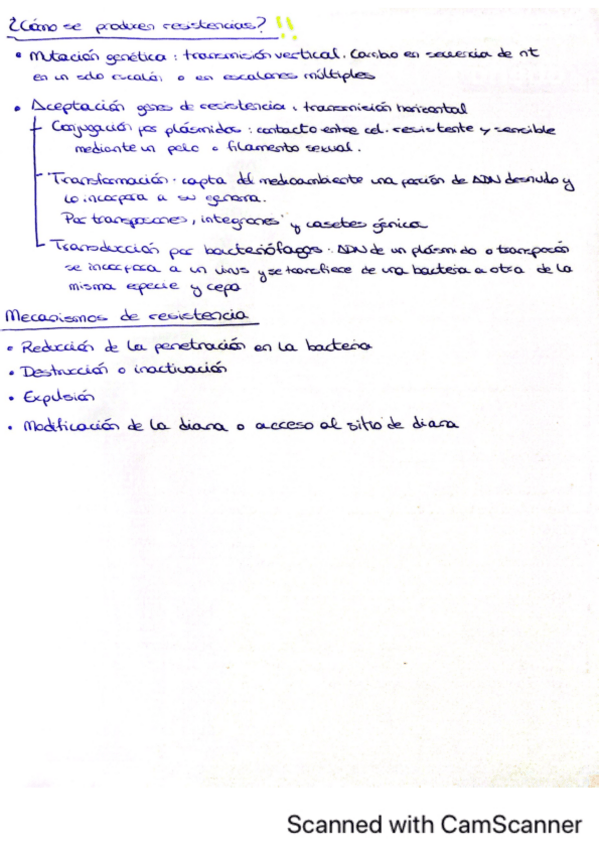 ¿Cómo se producen resistencias? !!
• Mutación genética: transmisión vertical. Cambio en secuencia de nt
en un solo escalón o en escalones múltiples
• Aceptación genes de resistencia: transmisión horizontal
Conjugación por plásmidos: contacto entre cel. resistente y sensible
mediante un pelo o filamento sexual.
- Transformación: capta del medioambiente una porción de ADN desnudo y
lo incorpora a su genoma.
Por transposones, integrones y casetes génica
Transducción por bacteriófagos: ADN de un plásmido o transposón
se incorpora a un virus y se transfiere de una bacteria a otra de la
misma especie y cepa
Mecanismos de resistencia
• Reducción de la penetración en la bacteria
• Destrucción o inactivación
• Expulsión
• Modificación de la diana o acceso al sitio de diana
Scanned with CamScanner